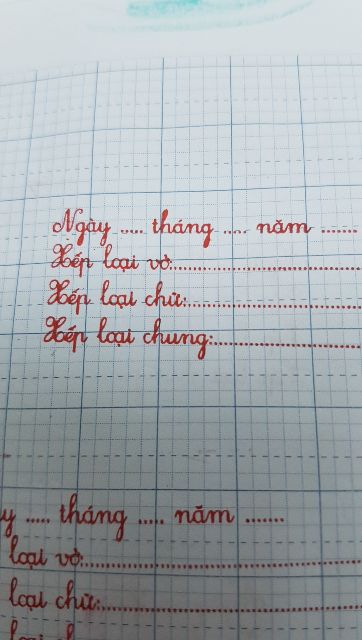 Ngày ..... tháng ..... năm ......
Xếp loại vở:..............................
Xếp loại chữ:..............................
Xếp loại chung:..............................
y ..... tháng ..... năm .......
loại vở:..............................
loại chữ:..............................